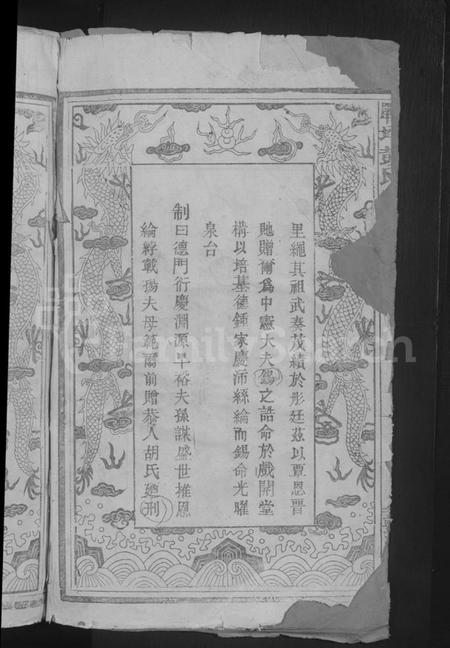 里繩其祖武奏茂績於彤廷茲以覃恩晋
貤贈爾爲中憲大夫錫之誥命於戲開堂
構以培基德鍾家慶沛絲綸而錫命光曜
泉台
制曰德門衍慶淵源早裕夫孫謀盛世推恩
綸綍載揚夫母範爾前贈恭人胡氏
FamilySearch